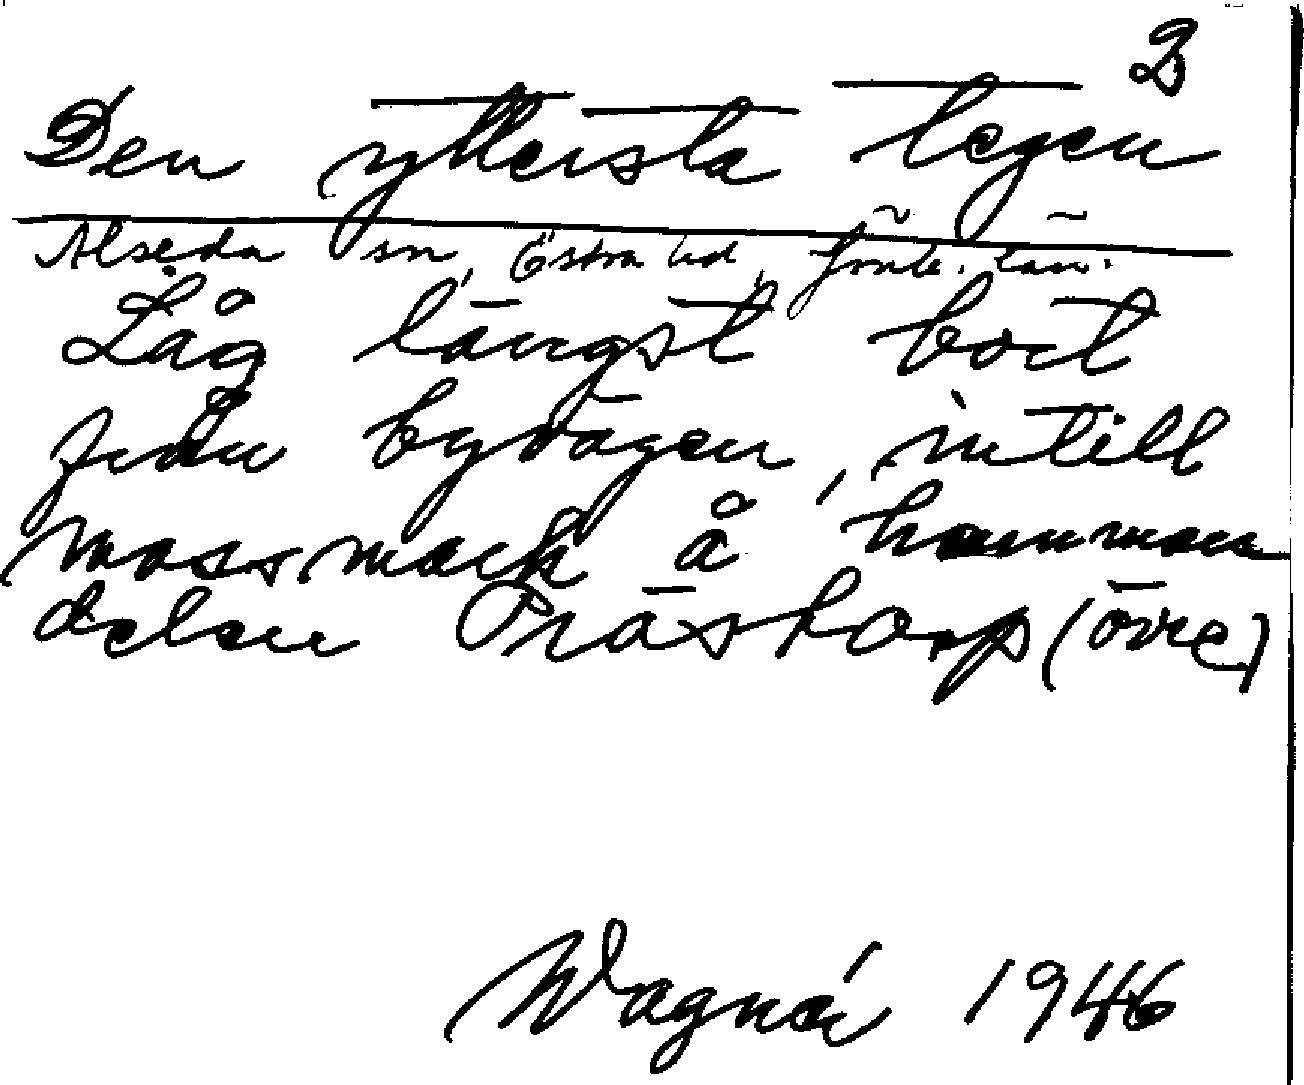 2
Den yttersta tegen
Alseda sn, Östra hd, Jönk. län.
Låg längst bort
från byvägen, intill
mossmark å hemmans
delen Prästorp (övre)
Wagnér 1946